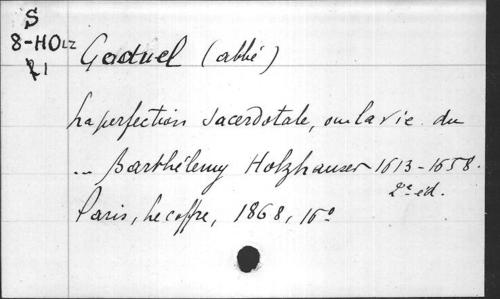 S
8-HOLZ
1
Gaduel (abbé)
La perfection sacerdotale, ou la vie du
... Barthélemy Holzhauser 1613-1658.
2e ed.
Paris, Lecoffre, 1868, 16º